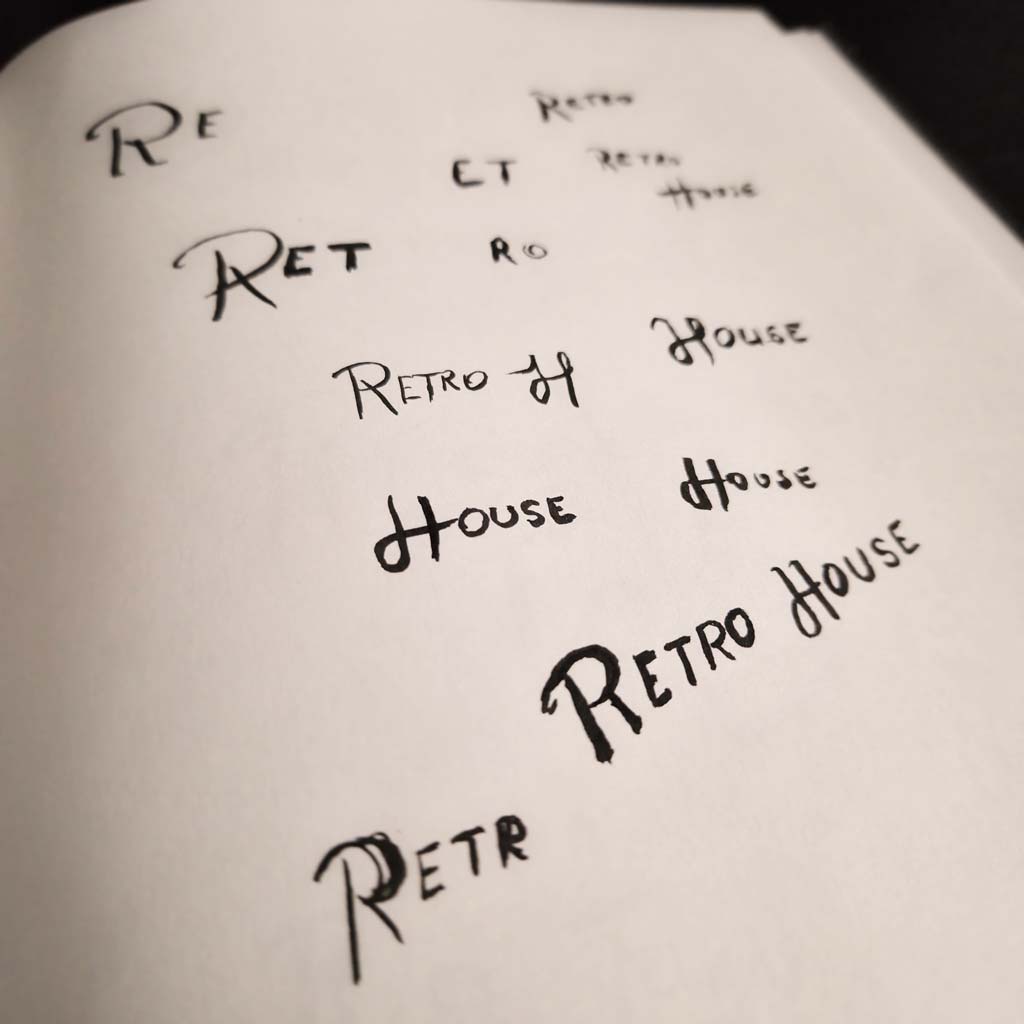 RE
RETRO
ET
RETRO
HOUSE
RET
RO
RETRO H
HOUSE
HOUSE
HOUSE
RETRO HOUSE
RETR